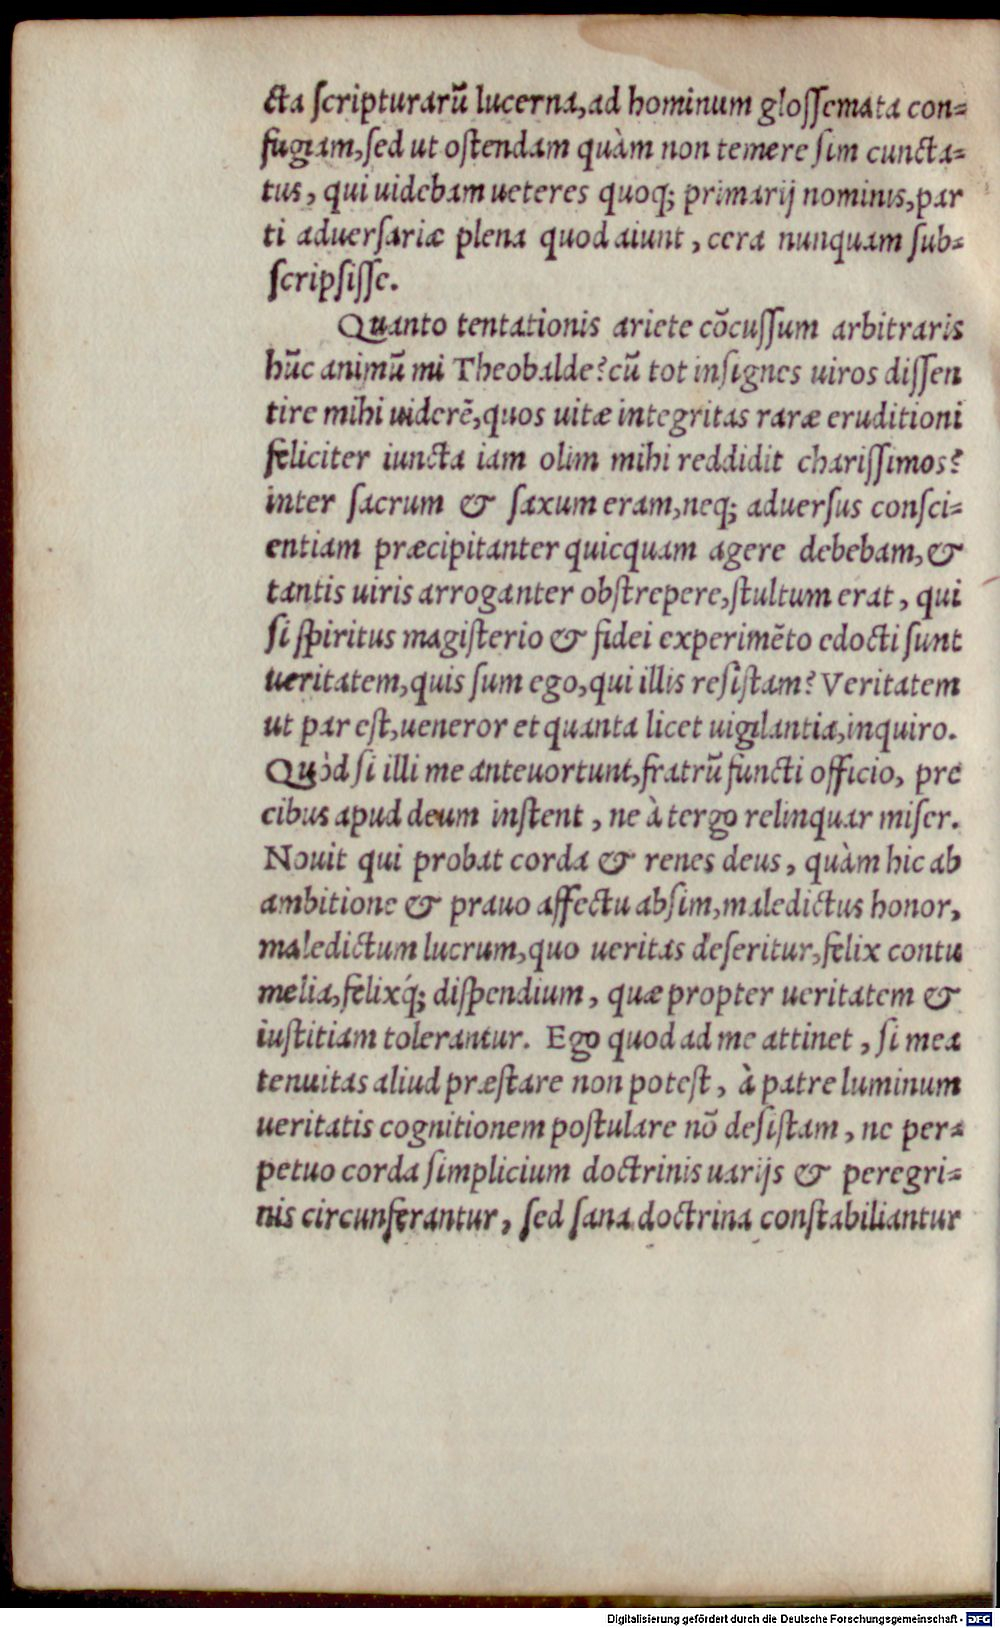 cta ſcripturarū lucerna, ad hominum gloſſemata con=
fugiam, ſed ut oſtendam quàm non temere ſim cuncta=
tus, qui uidebam ueteres quoq; primarij nominis, par
ti aduerſariæ plena quod aiunt, cera nunquam ſub=
ſcripſiſſe.
Quanto tentationis ariete cōcuſſum arbitraris
hūc animū mi Theobalde? cū tot inſignes uiros diſſen
tire mihi uiderē, quos uitæ integritas raræ eruditioni
feliciter iuncta iam olim mihi reddidit chariſſimos?
inter ſacrum & ſaxum eram, neq; aduerſus conſci=
entiam præcipitanter quicquam agere debebam, &
tantis uiris arroganter obſtrepere, ſtultum erat, qui
ſi ſpiritus magiſterio & fidei experimēto edocti ſunt
ueritatem, quis ſum ego, qui illis reſiſtam? Veritatem
ut par eſt, ueneror et quanta licet uigilantia, inquiro.
Quòd ſi illi me anteuortunt, fratrū functi officio, pre
cibus apud deum inſtent, ne à tergo relinquar miſer.
Nouit qui probat corda & renes deus, quàm hic ab
ambitione & prauo affectu abſim, maledictus honor,
maledictum lucrum, quo ueritas deſeritur, felix contu
melia, felixq́; diſpendium, quæ propter ueritatem &
iuſtitiam tolerantur. Ego quod ad me attinet, ſi mea
tenuitas aliud præſtare non poteſt, à patre luminum
ueritatis cognitionem poſtulare nō deſiſtam, ne per=
petuo corda ſimplicium doctrinis uarijs & peregri=
nis circunferantur, ſed ſana doctrina conſtabiliantur
Digitalisierung gefördert durch die Deutsche Forschungsgemeinschaft - DFG